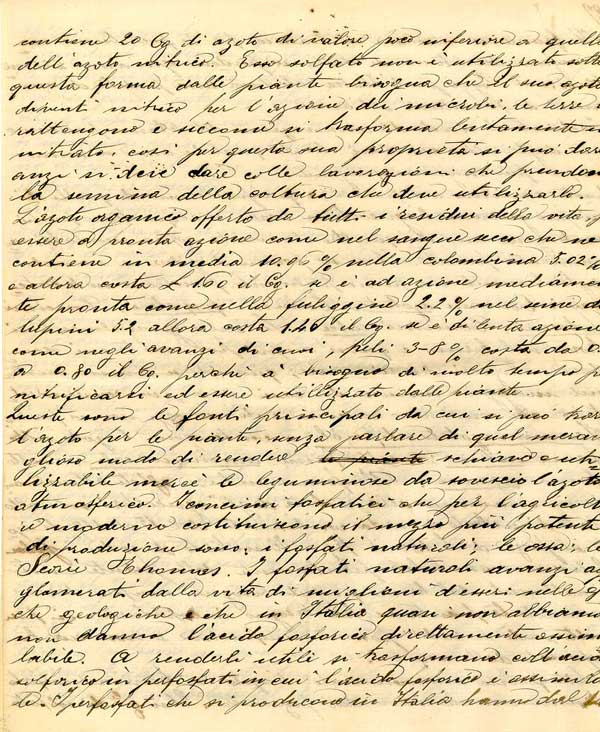 contiene 20 Cg. di azoto di valore poco inferiore a quello
dell'azoto nitrico. Esso solfato non è utilizzato sotto
questa forma dalle piante bisogna che il suo azoto
diventi nitrico per l'azione dei microbi, le terre
rattengono e siccome si trasforma lentamente
nitrato, così per questa sua proprietà si può dare
anzi si deve dare colle lavorazioni che
la semina della coltura che deve utilizzarlo.
L'azoto organico offerto da tutti i residui della vita,
essere a pronta azione come nel sangue secco che ne
contiene in media 10.96 % nella colombina 5.02 %
e allora costa £ 1.60 il Cg. se è ad azione
te pronta come nella fuliggine 2.2 % nel seme di
lupini 5.2 allora costa 1.40 il Cg. se è di lenta azione
come negli avanzi di cuoi, peli 3-8 % costa da 0.
a 0.80 il Cg. perchè à bisogno di molto tempo
nitrificarsi ed essere utilizzato dalle piante.
Queste sono le fonti principali da cui si può
l'azoto per le piante, senza parlare di quel merav
glioso modo di rendere le piante schiavo e uti
lizzabile mercè le leguminose da sovescio l'azoto
atmosferico. I concimi fosfatici che per l'agricolt
re moderno costituiscono il mezzo più potente
di produzione sono: i fosfati naturali; le ossa; le
Scorie Thomas. I fosfati naturali avanzi ag
glomerati dalla vita di milioni d'esseri nelle
che geologiche e che in Italia quasi non abbiamo
non danno l'acido fosforico direttamente assimi
labile. A renderli utili si trasformano coll'acido
solforico in perfosfati in cui l'acido fosforico è assimila
le. I perfosfati che si producono in Italia hanno dal